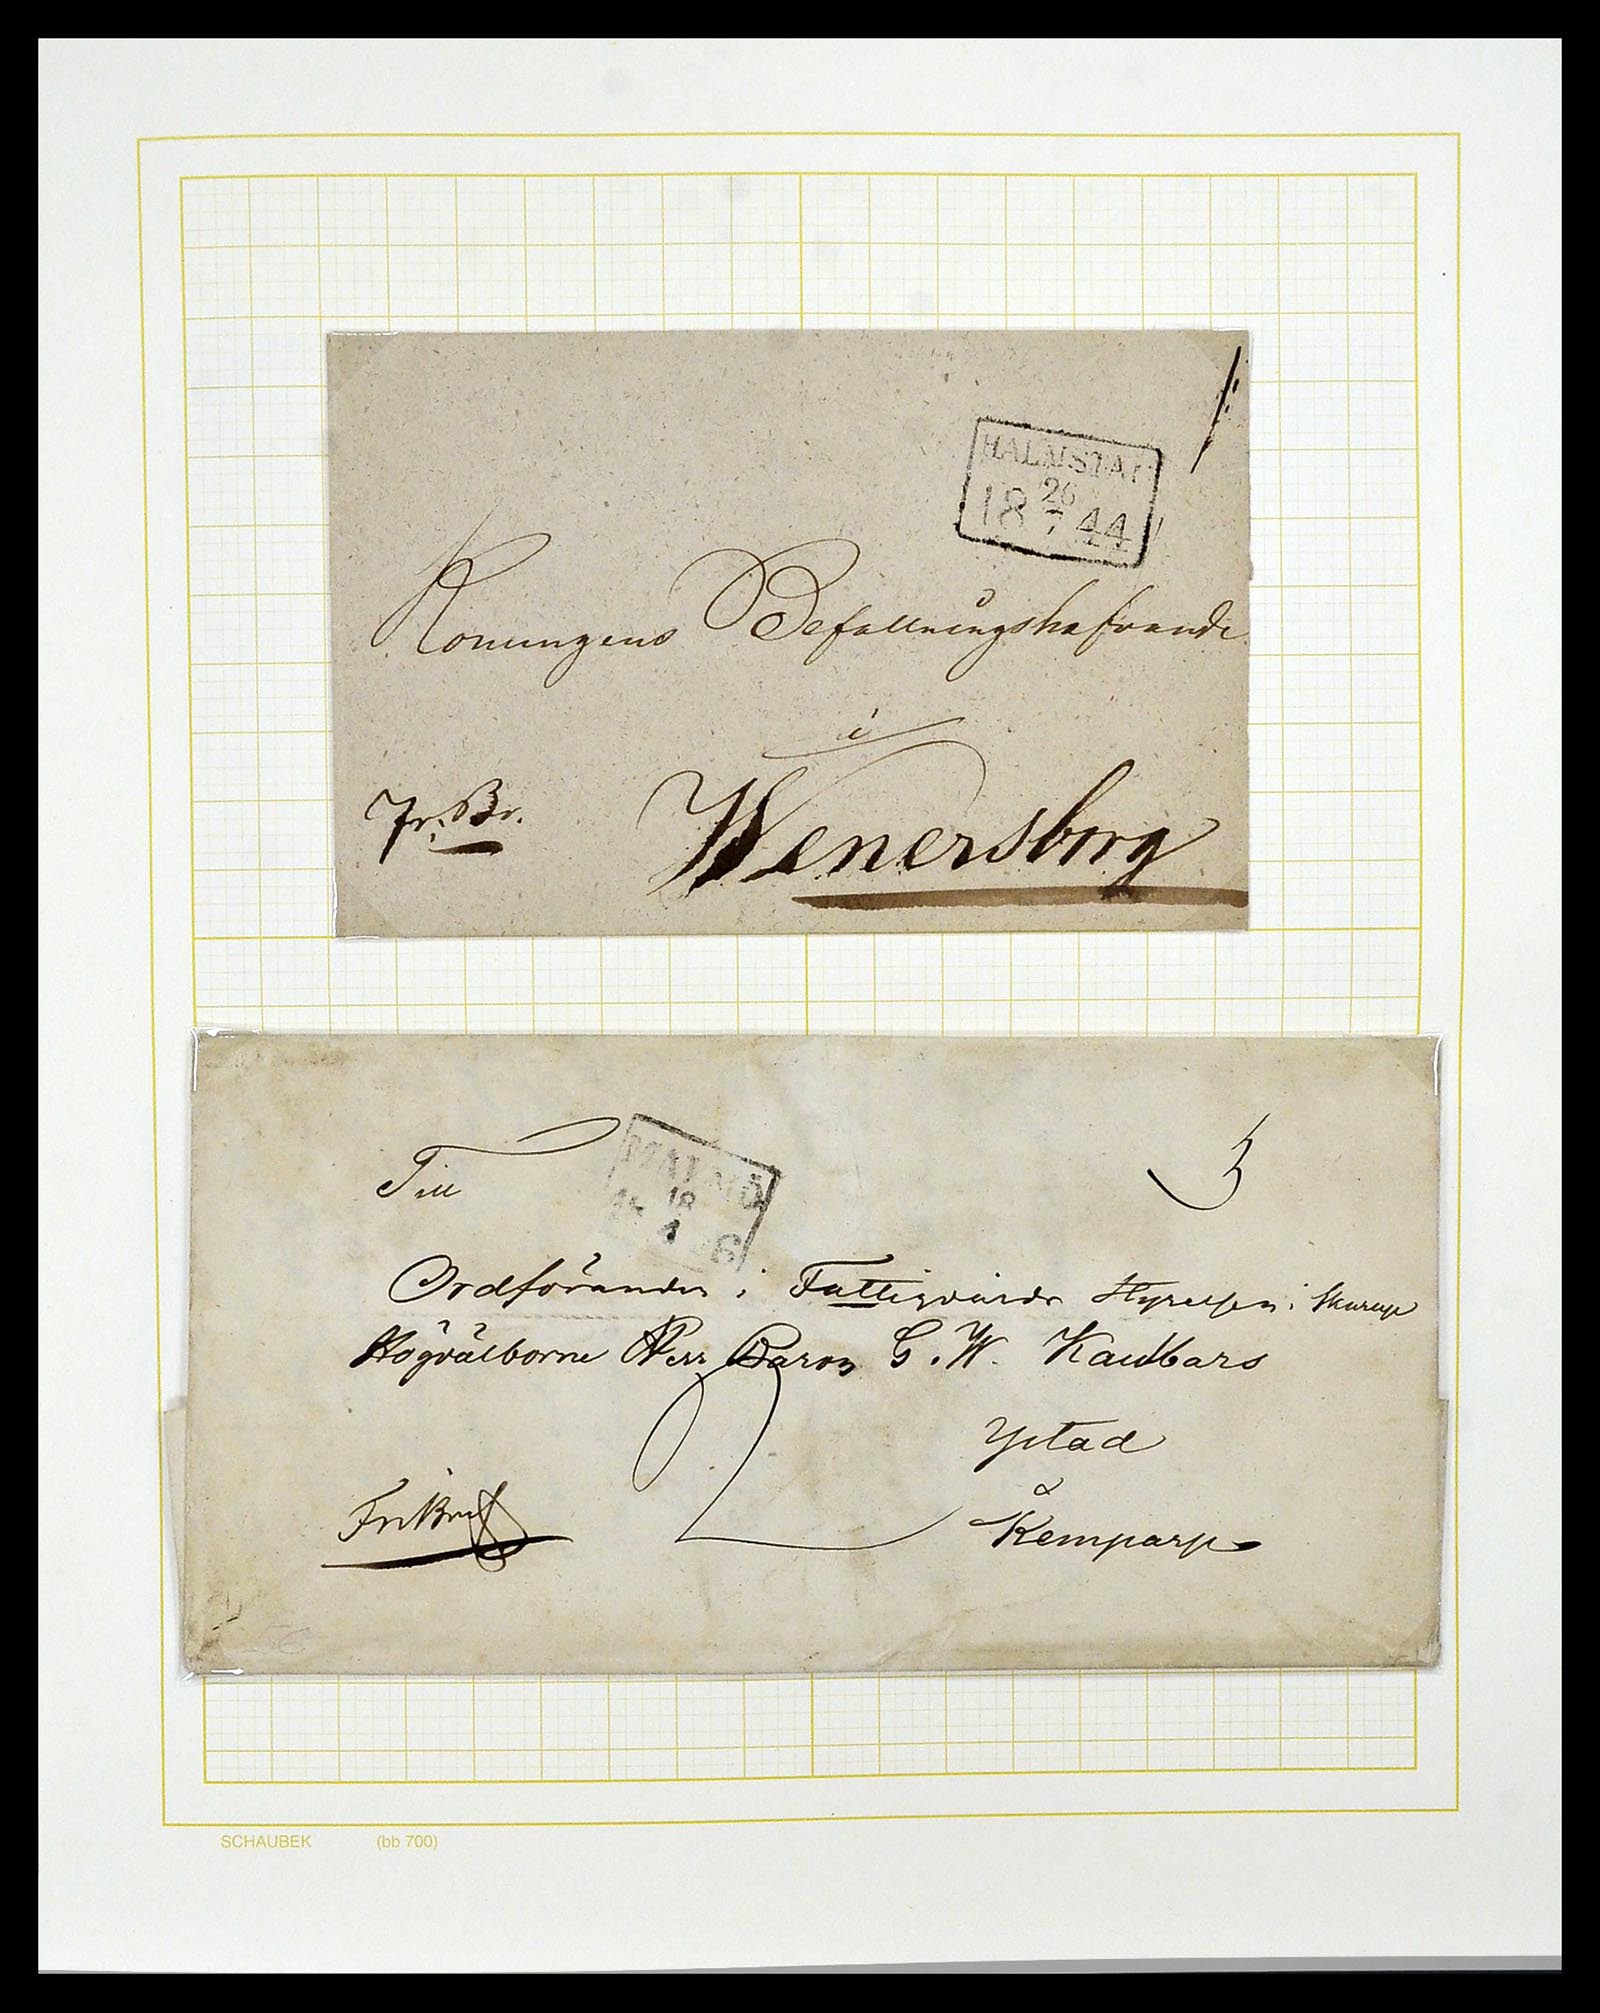 HALMSTAD
26
18 7 44
Konungens Befallningshafvande
i
Fr. Br.
Wenersborg
Till
3
MALMÖ
18
1
6
Ordföranden i Fattigvårds Styrelsen i Skurup
Högvälborne Herr Baron G. W. Kaulbars
2
Ystad
å
Fribref
Kemparp
SCHAUBEK (bb 700)